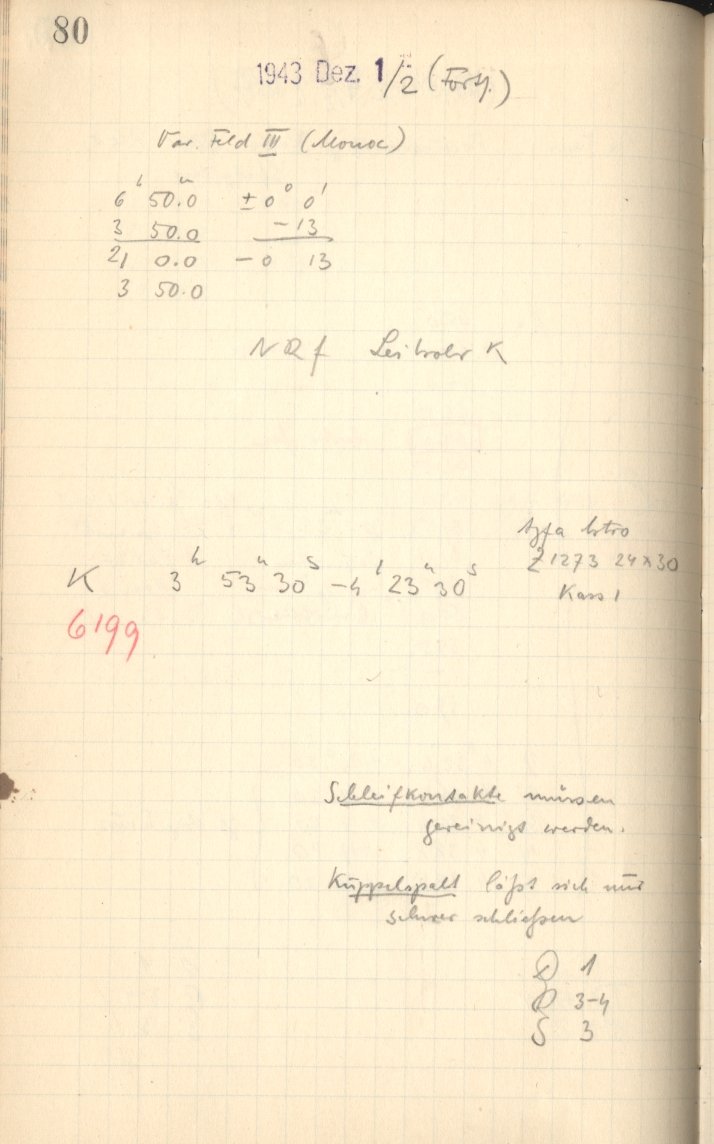 80
1943 Dez. 1/2 (Forts.)
Var. Feld III (Monoc)
6ʰ 50.0ᵐ ± 0° 0'
3 50.0 - 13
21 0.0 - 0 13
3 50.0
Leitrohr K
Agfa Astro
Z 1273 24x30
K 3ʰ 53ᵐ 30ˢ - 4ʰ 23ᵐ 30ˢ
Kass 1
6199
Schleifkontakte müssen
gereinigt werden.
Kuppelspalt läßt sich nur
schwer schließen
D 1
R 3-4
S 3